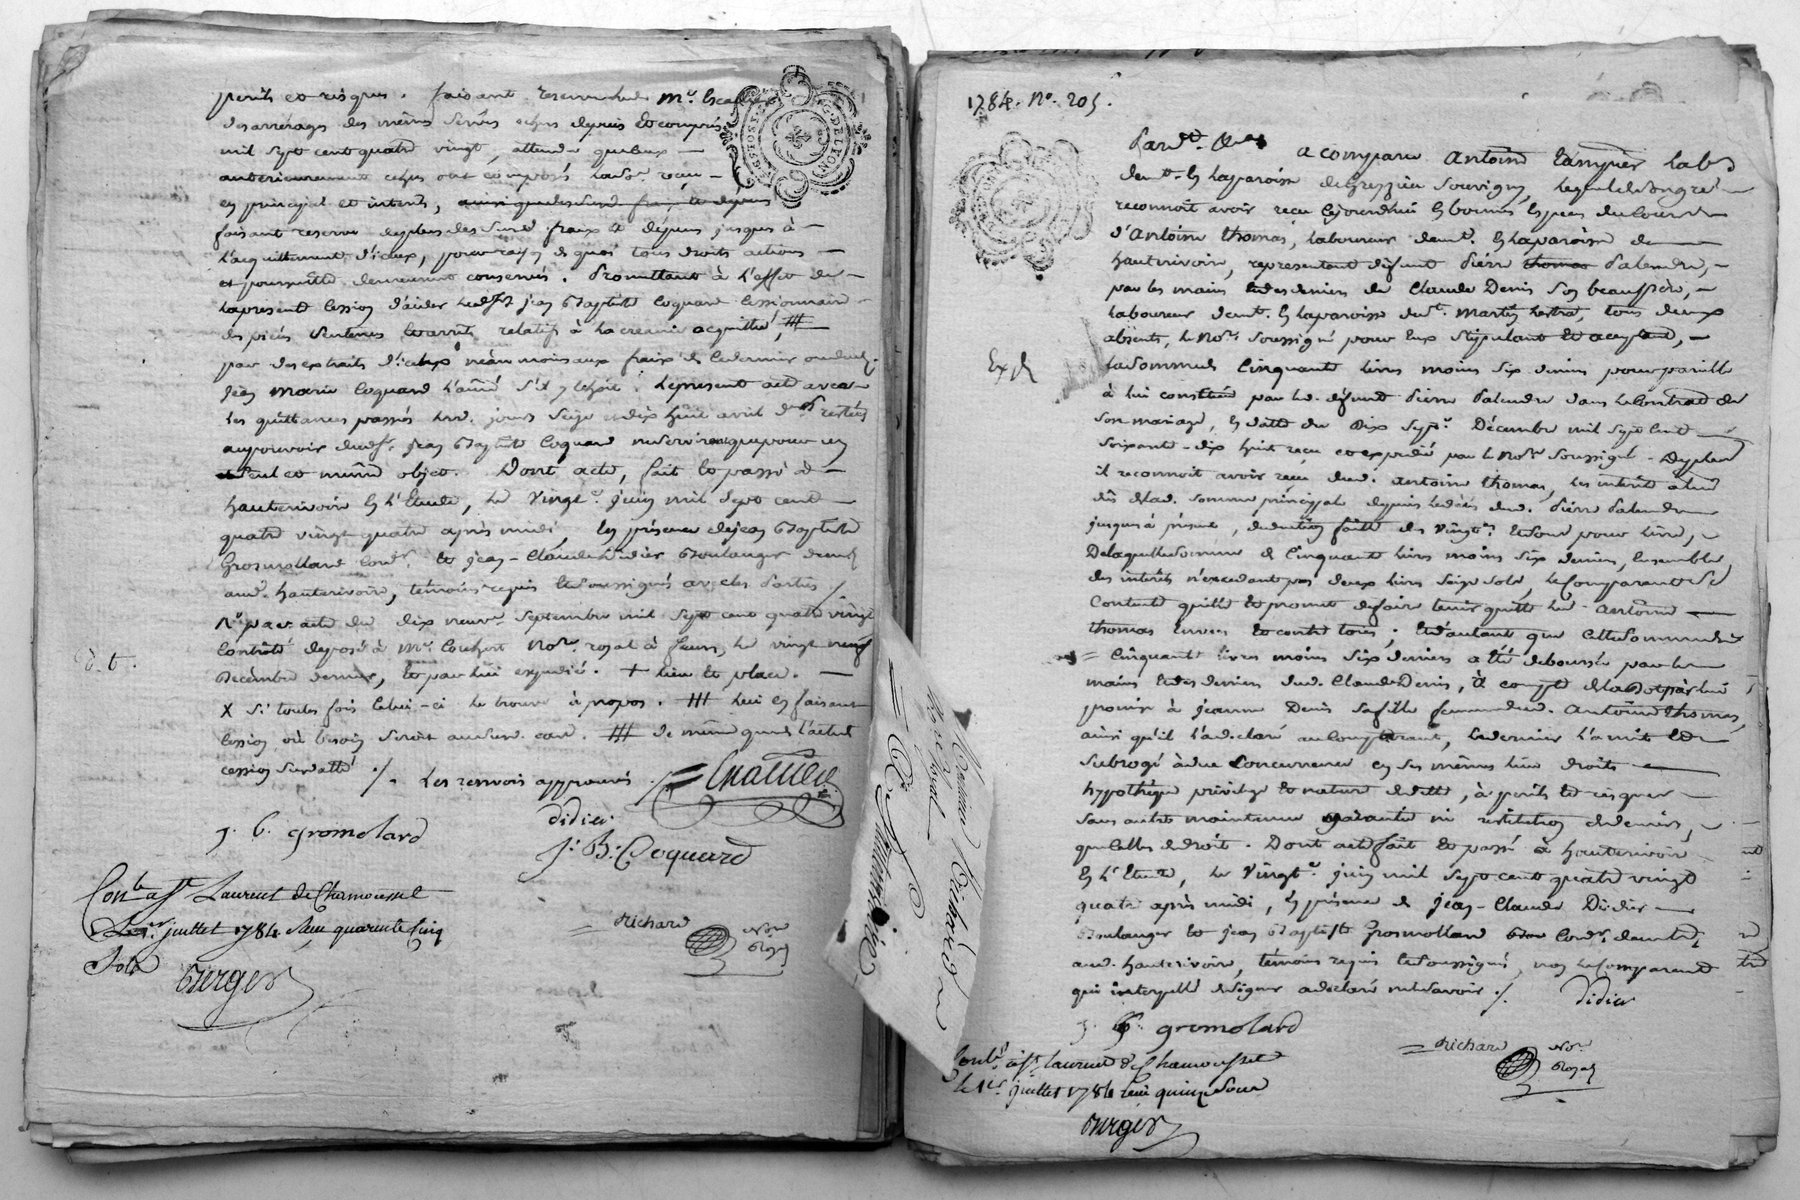 perils et risques. faisant reserve led. Mr.
des arrérages des mêmes servis echus depuis et compris
mil sept cent quatre vingt, attendu que ceux
anterieurement echus ont composés
en principal et interets,
faisant reserve de plus des susd. fraix et dépens jusques à
l'acquittement d'iceux, pour raison de quoi tous droits actions
et poursuites demeurent conservés. Promettant à l'effet de
la presente cession d'aider led. Sr. jean Baptiste Coquard cessionnaire
des piéces sentences et arrêts relatifs à la creance acquittée, #
par des extraits d'iceux néanmoins aux fraix de ce dernier ou dud.
jean marie Coquard l'ainé s'il y echoit. le present acte avec
les quittances passés lesd. jours seize et dix huit avril restées
au pouvoir dud. Sr. jean Baptiste Coquard ne servira que pour un
seul et même objet. Dont acte, fait et passé à
hauterivoire en l'Etude, le vingt juin mil sept cent
quatre vingt quatre après midi, en présence de jean Baptiste
Grosmollard cord. et jean-Claude Didier Boulanger demt.
aud. hauterivoire, témoins requis et soussignés avec les parties
par acte du dix neuf septembre mil sept cent quatre vingt
Controlé deposé à Mr. Nore. royal à feurs, le vingt neuf
Décembre dernier, et par lui expedié. + lieu et place.
X si toutes fois celui-ci le trouve à propos. # lui en faisant
cession où besoin seroit au susd. cas. # de même que de l'acte de
cession susdatté ./. Les renvois approuvés ./.
j. b. gromolard
didier
J: B: Coquard
Conlé. à St. Laurent de Chamousset
Le 1er. juillet 1784 Reçu quarente cinq
sols
Berger
Richard Nore
Royal
1784. No. 205.
Pardt. a comparu antoine labr
demt. en la paroisse de Grezzieu souvigny, lequel de son gré
reconnoit avoir reçu cejourdhui en bonnes especes du cours
d'Antoine thomas, laboureur demt. en la paroisse de
hauterivoire, representant défunt Piérre thomas Palandre,
par les mains et des deniers de Claude Denis son beaupére,
laboureur demt. en la paroisse de St. martin lestra, tous deux
absents, le Nore. soussigné pour eux stipulant et acceptant,
Exp
la somme de Cinquante livres moins six deniers pour pareille
à lui constituée par led. défunt Pierre Palandre dans le Contrat de
son mariage, en datte du Dix sept Décembre mil sept cent
soixante-dix huit reçu et expédié par le Nore. soussigné. De plus
il reconnoit avoir reçu dud. antoine thomas, les interets
de lad. somme principale depuis le décès dud. Pierre Palandre
jusques à présent, deduction faite des vingts. et sous pour livre,
De laquelle somme de Cinquante livres moins six deniers, Ensemble
des interets n'excedant pas deux livres seize sols, le Comparant se
contente quitte et promet de faire tenir quitte led. antoine
thomas envers et contre tous; Et d'autant que cette somme de
Cinquante livres moins six deniers a été deboursée par les
mains et des deniers dud. Claude Denis, à compte de la dot par lui
promise à jeanne Denis sa fille femme dud. Antoine thomas,
ainsi qu'il l'a declaré au Comparant, ce dernier l'a mis et
subrogé à due Concurrence en ses mêmes lieu droits
hypothèque privilege et nature de dette, à périls et risques
sans autre maintenue garantie ni restitution de deniers,
que celles de droit. Dont acte fait et passé à hauterivoire
en l'Etude, le vingt juin mil sept cent quatre vingt
quatre après midi, en présence de jean-Claude Didier
Boulanger et jean Baptiste Grosmollard cord. demts.
aud. hauterivoire, témoins requis et soussignés, non le Comparant
qui interpellé de signer a declaré ne le savoir ./. Didier
j. B. gromolard
Richard Nore
Royal
Conlé. à St. laurent de Chamousset
le 1er. juillet 1784 reçu quinze sous
Berger